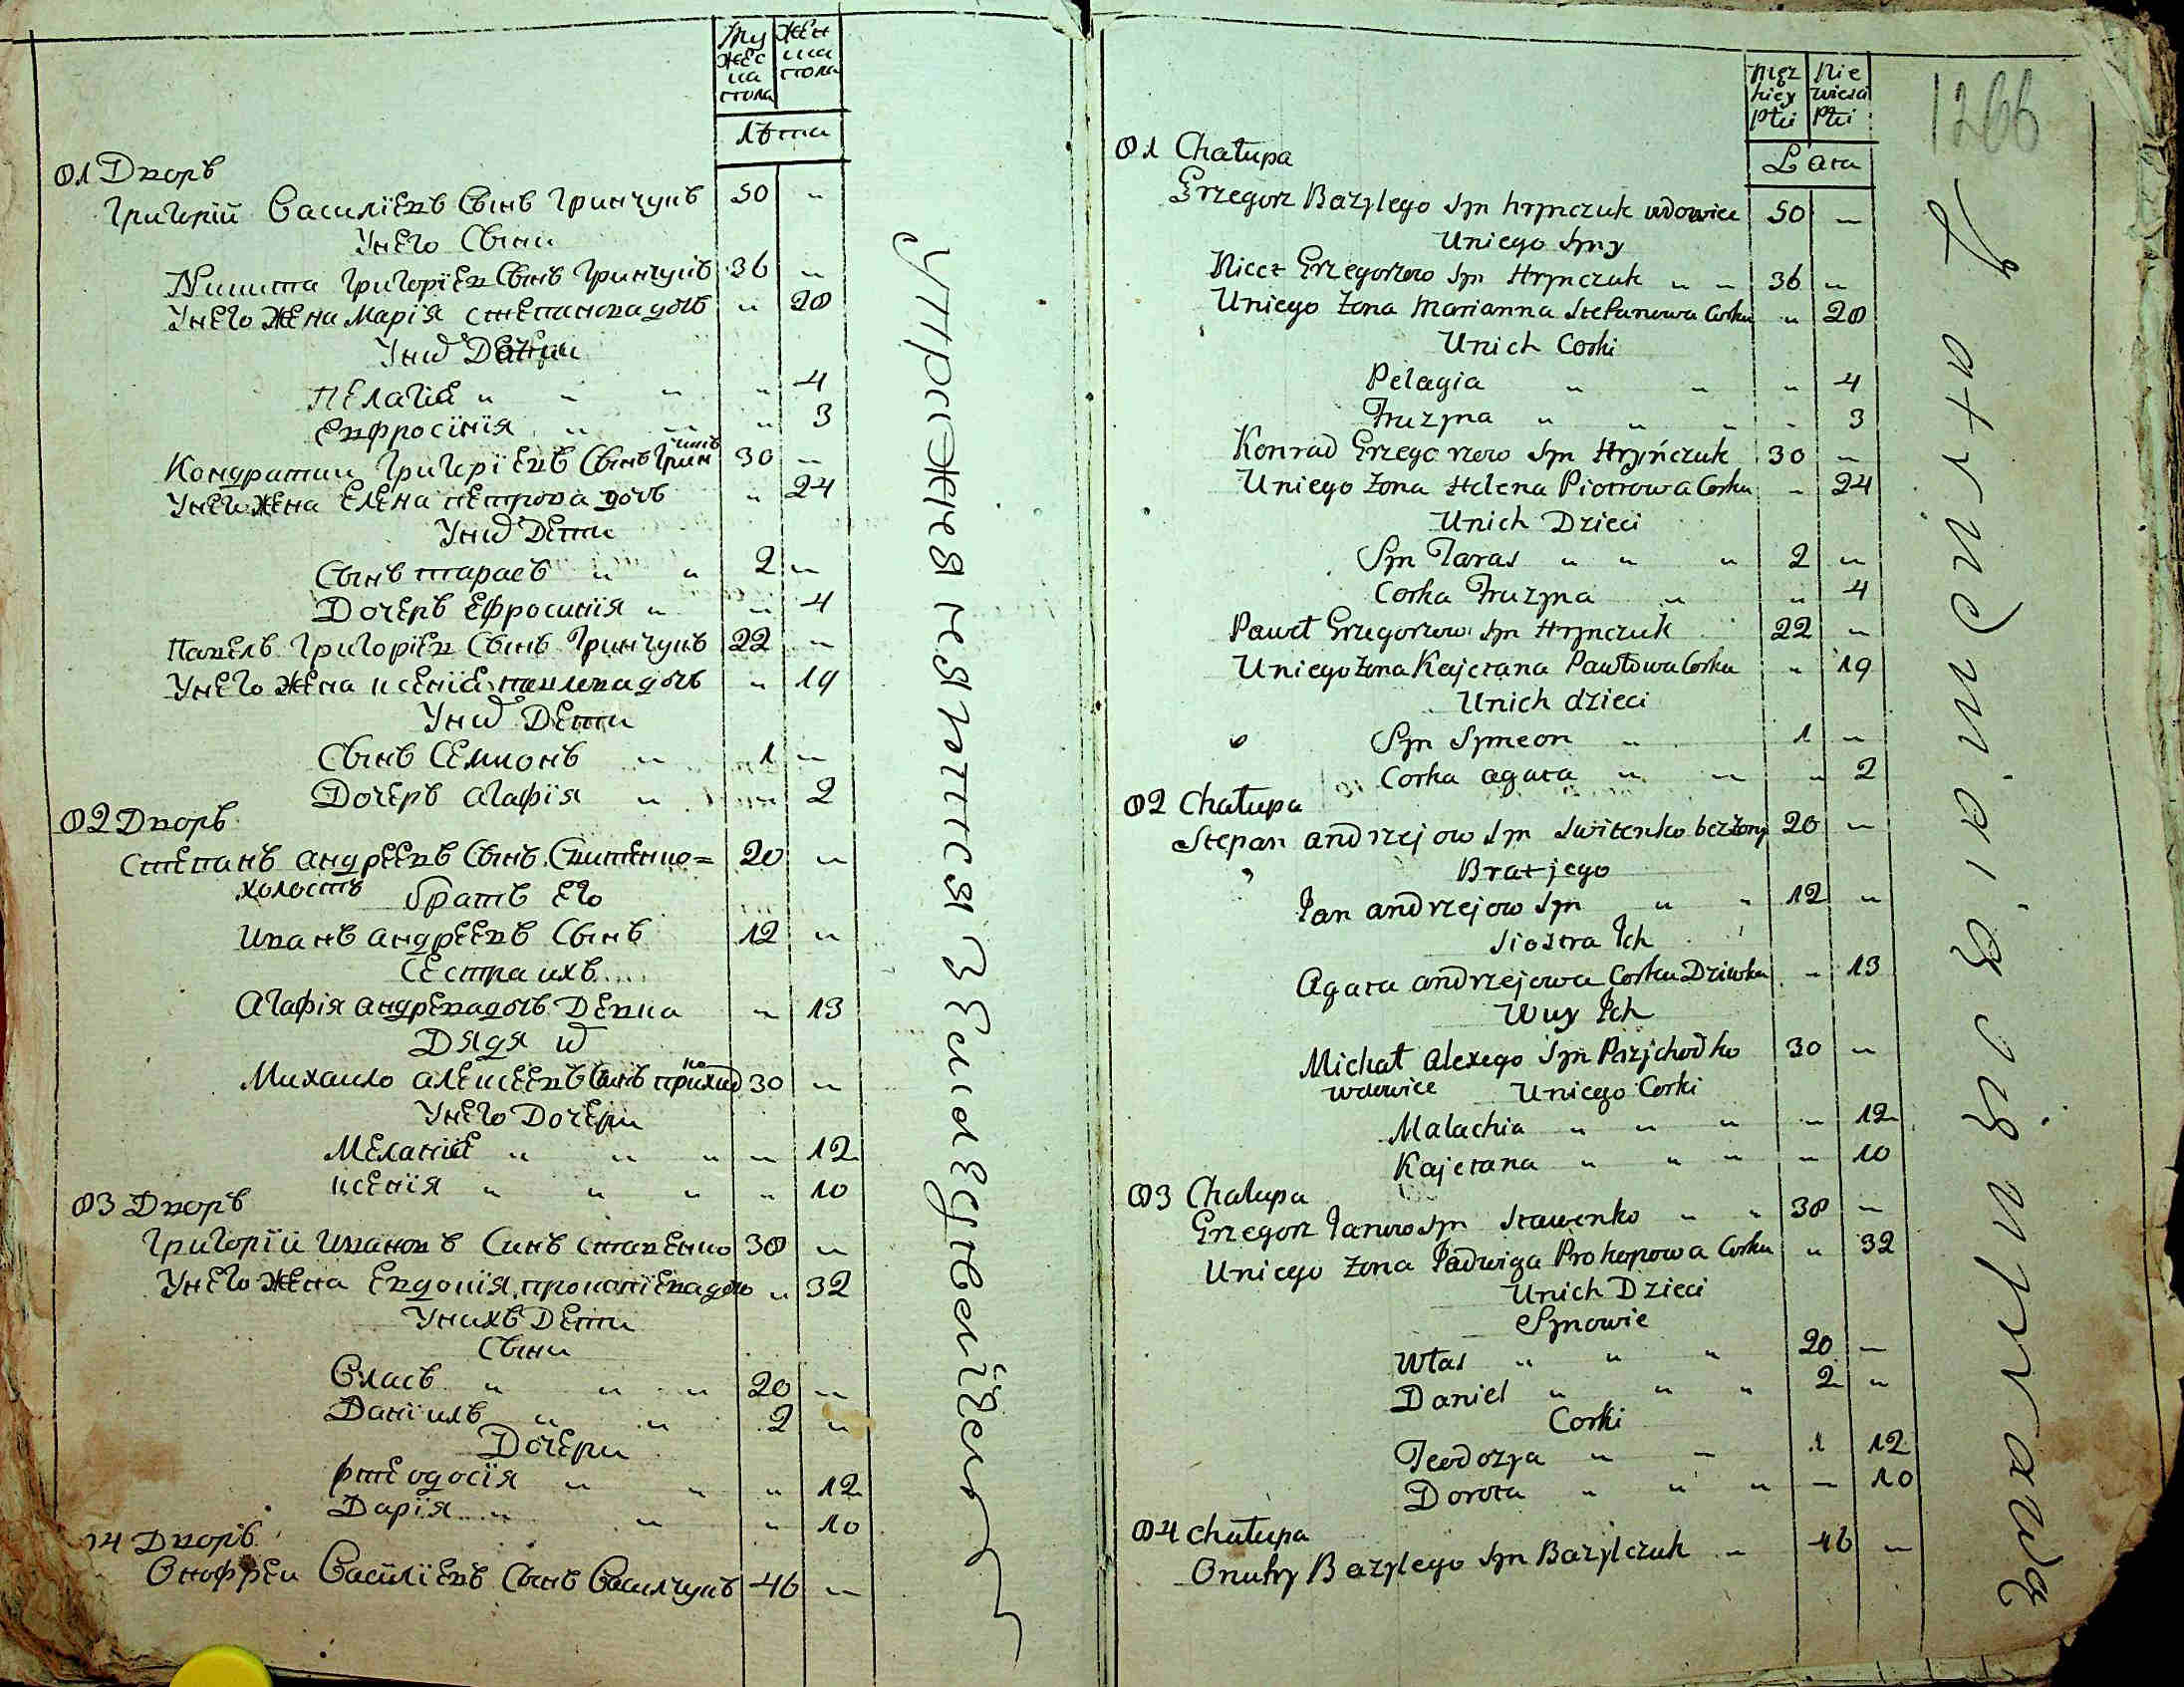 Мужеска пола
Женска пола
Лѣта
01 Дворъ
Григорій Василіевъ Сынъ Гринчукъ 50 "
У него Сыни
Никита Григоріев Сынъ Гринчукъ 36 "
У него Жена Марія Степанова дочь " 20
Пелагіа " " " " 4
Евфросінія " " " 3
Кондратии Григоріевъ Сынъ Гринчукъ 30 "
У него Жена Елена петрова дочь " 24
У них Дети
Сынъ тарасъ " " 2 "
Дочеръ ефросинія " " 4
Павелъ Григоріев Сынъ Гринчукъ 22 "
У него Жена ксеніа павлова дочь " 19
У них Дети
Сынъ Семионъ " 1 "
Дочеръ агафія " " 2
02 Дворъ
Степанъ андреевъ Сынъ Свитенко = 20 "
холостъ братъ Его
Иванъ андреевъ Сынъ 12 "
Сестра ихъ
Агафія андрева дочь Девка " 13
Дядя их
Михаило алексеевъ Сынъ приходко 30 "
У него Дочери
Меланіа " " " " 12
ксенія " " " " 10
03 Дворъ
Григорій Ивановъ Синъ ставенко 30 "
У него Жена Евдокія прокопіева дочь " 32
У нихъ Дети
Сыни
Власъ " " " 20 "
Даніилъ " " 2 "
Дочери
фтеодосія " " " 12
Дарія " " " 10
04 Дворъ
Онофреи Василіевъ Сынъ Василчукъ 46 "
Męzkiey Płci
Niewiesci Płci
Lata
1266
01 Chałupa
Grzegorz Bazylego Syn hrynczuk wdowiec 50 "
Uniego Syny
Nicet Grzegorzow Syn Hrynczuk " " 36 "
Uniego Zona Marianna Stefanowa Corka " 20
Unich Corki
Pelagia " " " 4
Fruzyna " " " " 3
Konrad Grzegorzow Syn Hryńczuk 30 "
Uniego Zona Helena Piotrowa Corka " 24
Unich Dzieci
Syn Taras " " " 2 "
Corka Fruzyna " " 4
Paweł Grzegorzow Syn Hrynczuk 22 "
Uniego Zona Kajetana Pawłowa Corka " 19
Unich dzieci
Syn Symeon " 1 "
Corka agata " " " 2
02 Chałupa
Stepan andrzejow Syn Switenko bez żony 20 "
Brat jego
Jan andrzejow Syn " " 12 "
Siostra Ich
Agata andrzejowa Corka Dziwka " 13
Wuy Ich
Michał alexego Syn Pszychodko 30 "
wdowiec Uniego Corki
Malachia " " " " 12
Kajetana " " " " 10
03 Chałupa
Grzegorz Janow Syn Stawenko " " 30 "
Uniego Zona Jadwiga Prokopowa Corka " 32
Unich Dzieci
Synowie
Włas " " " 20 "
Daniel " " " 2 "
Corki
Teodozya " " 1 12
Dorota " " " " 10
04 chałupa
Onufry Bazylego Syn Bazylczuk " 46 "